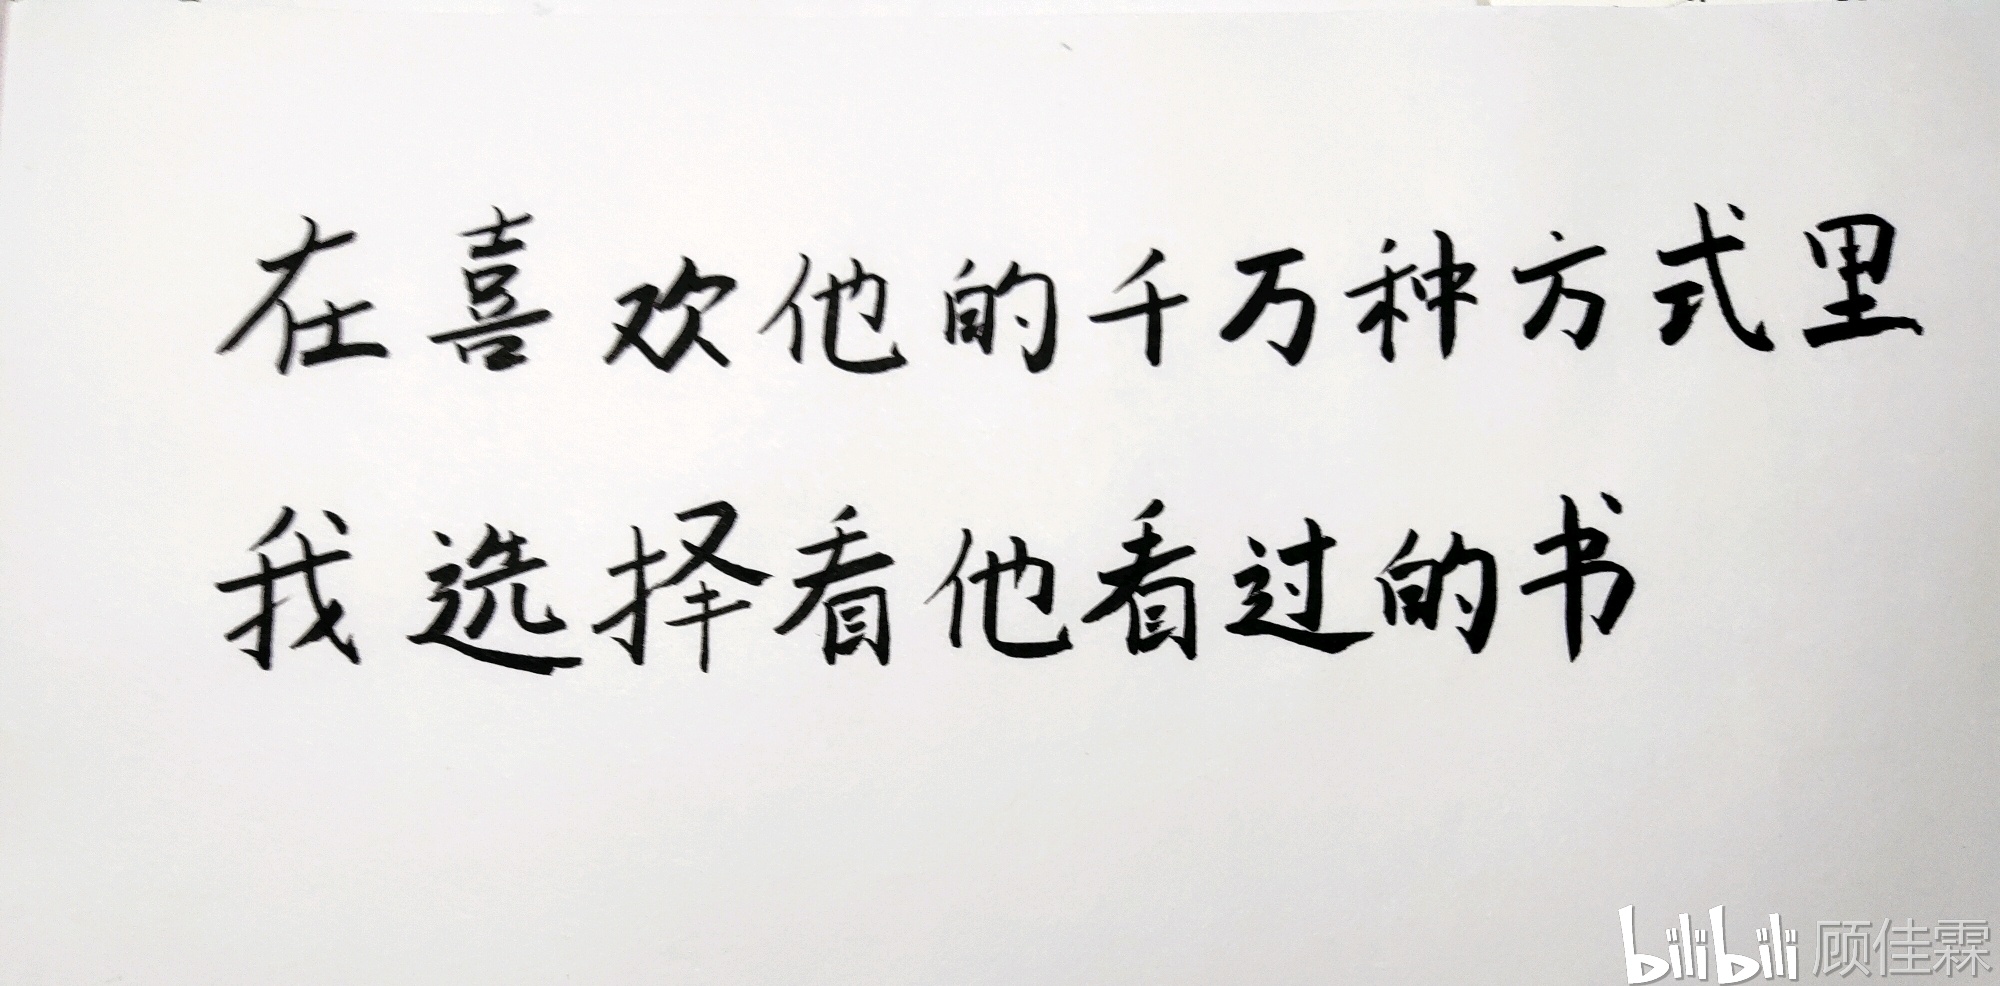 在喜欢他的千万种方式里
我选择看他看过的书
bilibili 顾佳霖